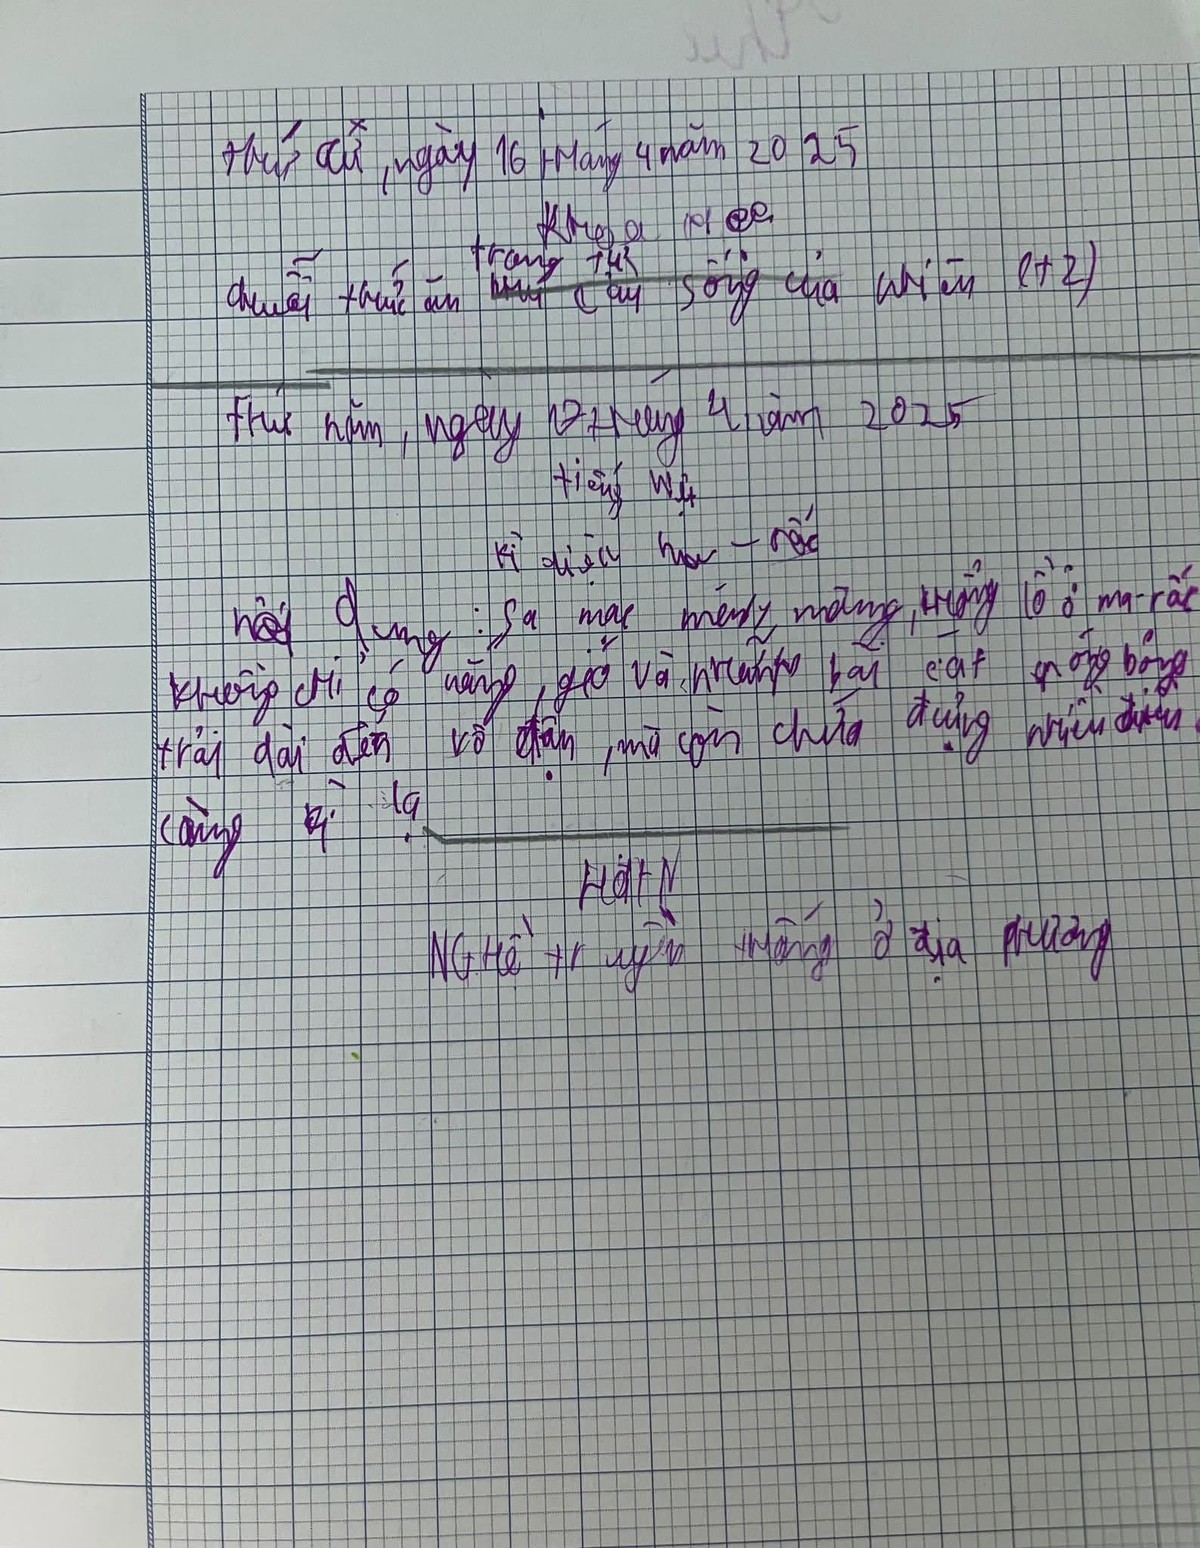 thứ tư, ngày 16 tháng 4 năm 2025
Khoa học
trong tự
chuỗi thức ăn cây sống của nhiên (t2)
thứ năm, ngày 17 tháng 4 năm 2025
tiếng việt
kì diệu ma-rốc
nội dung: Sa mạc mênh mông, khổng lồ ở ma-rốc
không chỉ có nắng, gió và những bãi cát mông
trải dài đến vô tận, mà còn chứa đựng nhiều điều
càng kì lạ
HĐTN
NGHề truyền thống ở địa phương